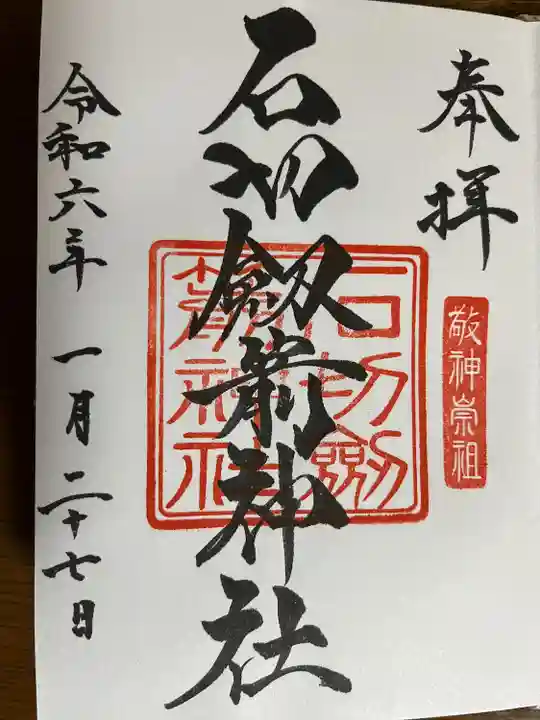 奉拝
敬神崇祖
石切劔箭神社
石切劔
箭神社
令和六年 一月二十七日